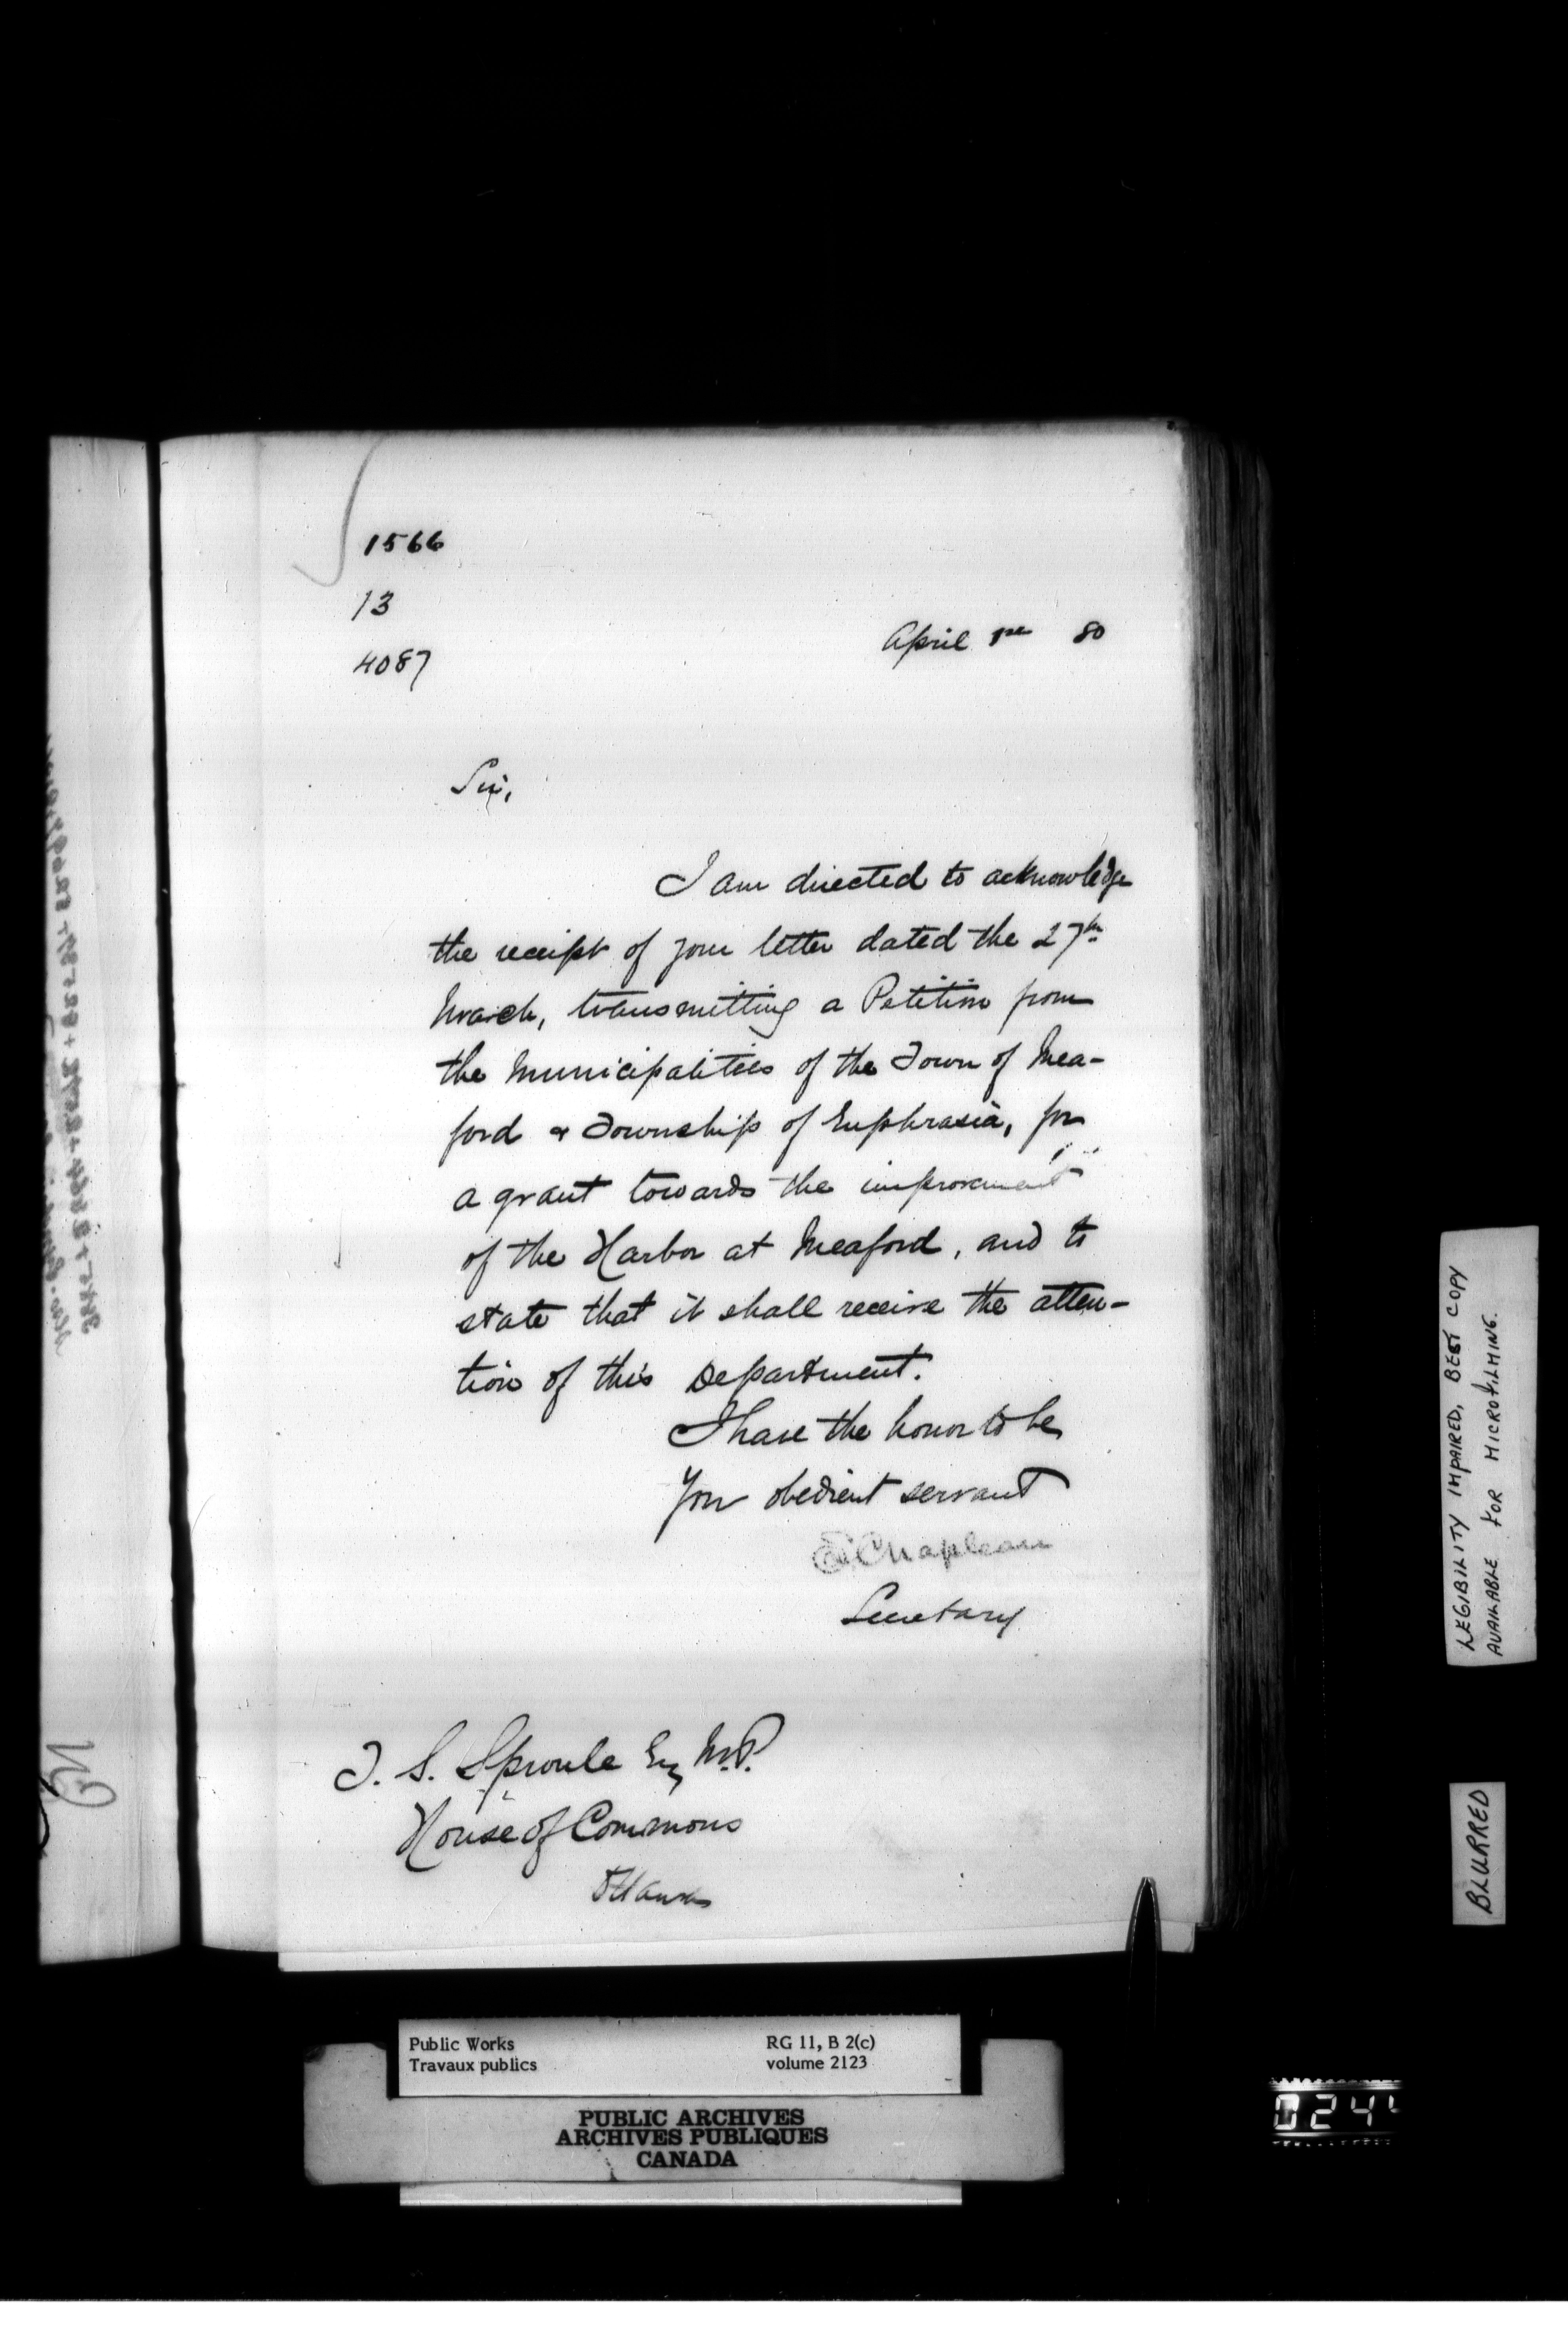 1566
13
4087
April 1st 80
Sir,
I am directed to acknowledge
the receipt of your letter dated the 27th
March, transmitting a Petition from
the Municipalities of the Town of Mea-
ford & Township of Euphrasia, for
a grant towards the improvement
of the Harbor at Meaford, and to
state that it shall receive the atten-
tion of this Department.
I have the honor to be
Your obedient servant
Chapleau
Secretary
T. S. Sproule Esq M.P.
House of Commons
Ottawa
LEGIBILITY IMPAIRED, BEST COPY
AVAILABLE FOR MICROFILMING.
BLURRED
Public Works
Travaux publics
RG 11, B 2(c)
volume 2123
PUBLIC ARCHIVES
ARCHIVES PUBLIQUES
CANADA